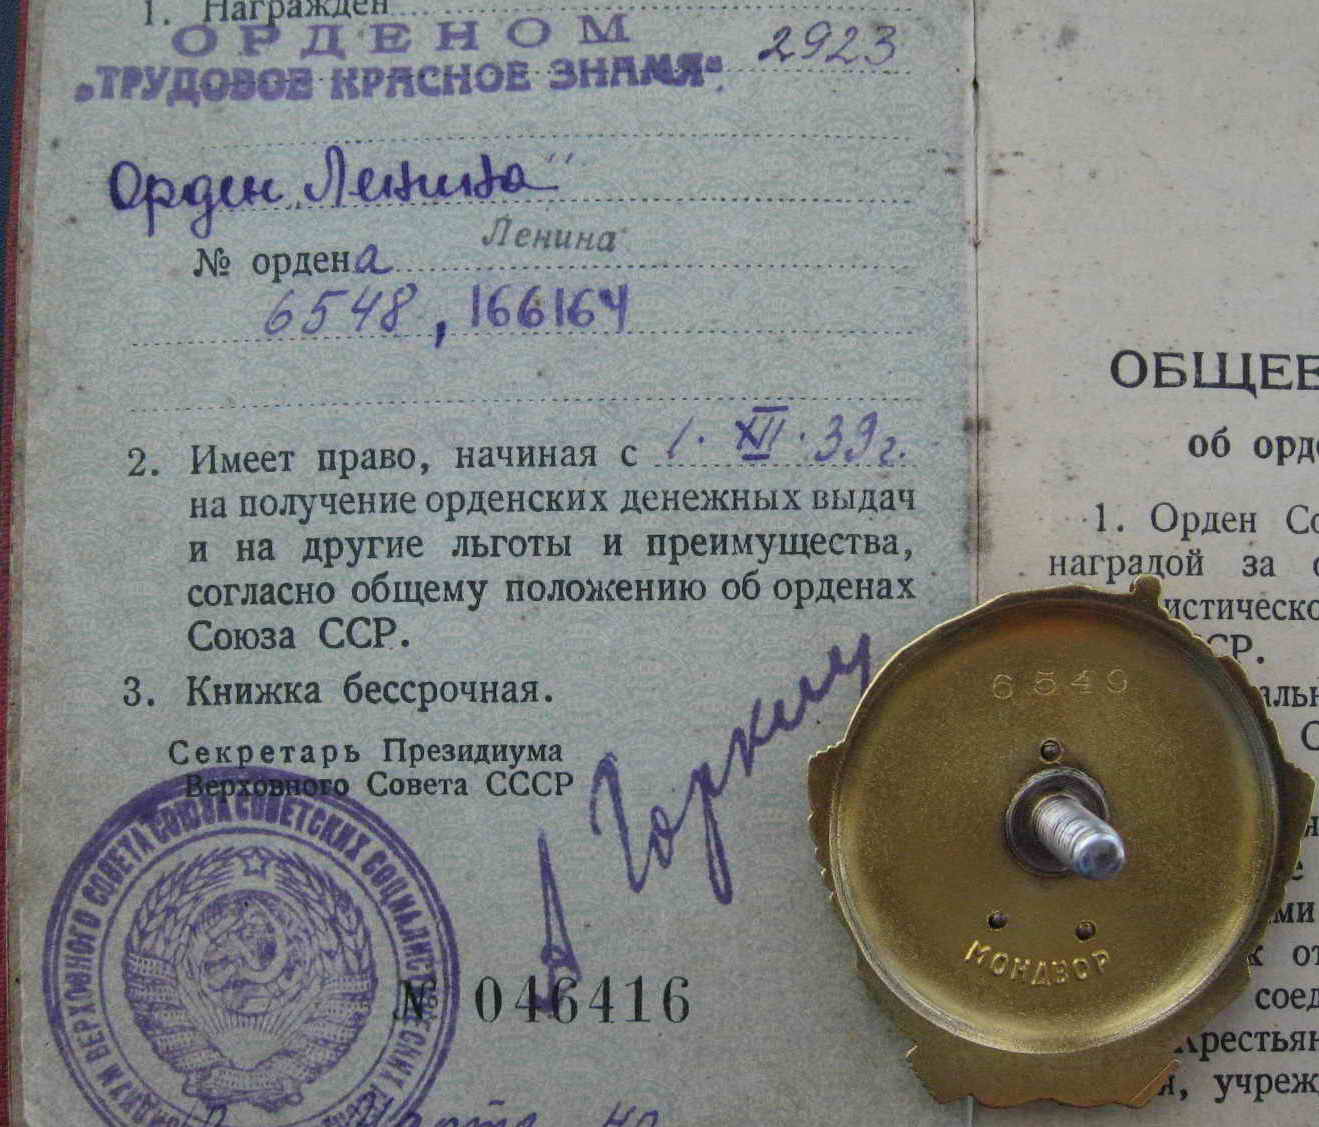 1. Награжден
ОРДЕНОМ
„ТРУДОВОЕ КРАСНОЕ ЗНАМЯ“ 2923
Орден „Ленина“
Ленина
№ ордена
6548, 166164
2. Имеет право, начиная с 1. XII. 39 г.
на получение орденских денежных выдач
и на другие льготы и преимущества,
согласно общему положению об орденах
Союза ССР.
3. Книжка бессрочная.
Секретарь Президиума
Верховного Совета СССР
А Горкин
ПРЕЗИДИУМ ВЕРХОВНОГО СОВЕТА СОЮЗА СОВЕТСКИХ СОЦИАЛИСТИЧЕСКИХ
№ 046416
марта 40
ОБЩЕЕ
об орде
1. Орден Со
наградой за о
истическо
ССР.
альн
С
я
е
ми
к от
соед
Крестьян
я, учреж
6549
МОНДВОР